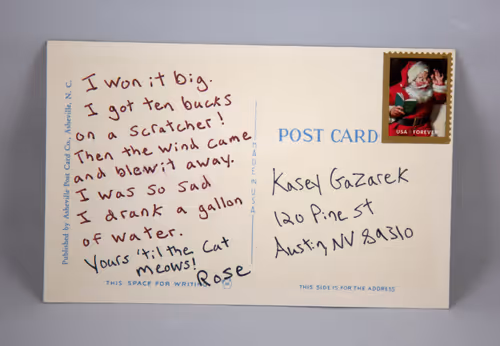 Published by Asheville Post Card Co., Asheville, N. C.
I won it big.
I got ten bucks
on a scratcher!
Then the wind came
and blew it away.
I was so sad
I drank a gallon
of water.
Yours 'til the Cat
meows!
Rose
THIS SPACE FOR WRITING
MADE IN USA
USA FOREVER
POST CARD
Kasey Gazarek
120 Pine St
Austin NV 89310
THIS SIDE IS FOR THE ADDRESS